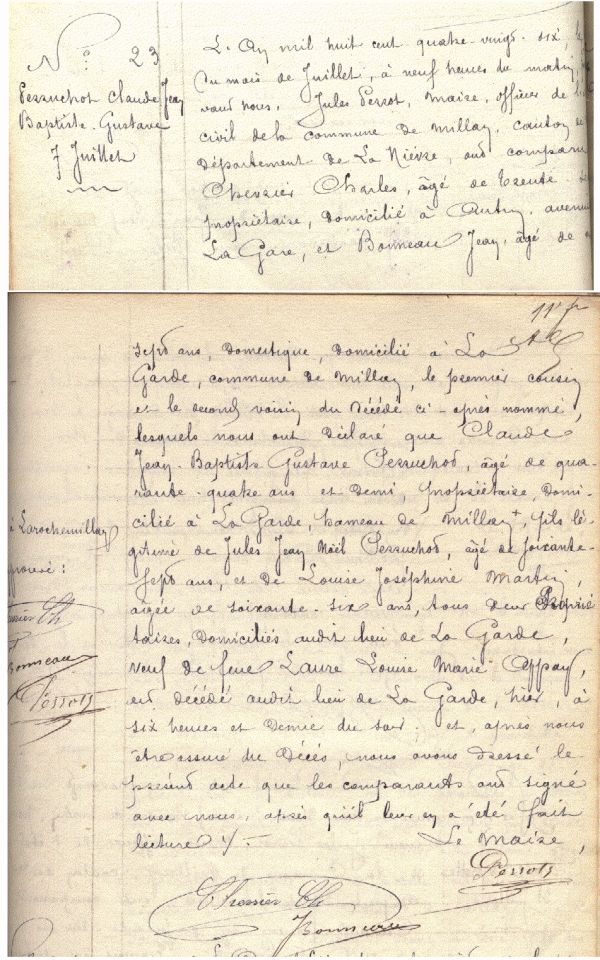 N° 23
Perruchot Claude Jean
Baptiste Gustave
7 Juillet
L'An mil huit cent quatre-vingt-six, le
du mois de Juillet, à neuf heures du matin,
vant nous, Jules Perrot, Maire, officier de l'
civil de la commune de Millay, canton de
département de La Nièvre, ont comparu
Cherrier Charles, âgé de trente
propriétaire, domicilié à Autun, avenue
La Gare, et Bonneau Jean, âgé de
11e
sept ans, domestique, domicilié à La
Garde, commune de Millay, le premier cousin
et le second voisin du décédé ci-après nommé,
lesquels nous ont déclaré que Claude
Jean-Baptiste Gustave Perruchot, âgé de qua-
rante-quatre ans et demi, propriétaire, domi-
cilié à La Garde, hameau de Millay+, fils lé-
gitime de Jules Jean Noël Perruchot, âgé de soixante-
sept ans, et de Louise Joséphine Martin,
âgée de soixante-six ans, tous deux proprié
taires, domiciliés audit lieu de La Garde,
veuf de feue Laure Louise Marie Appay,
est décédé audit lieu de La Garde, hier, à
six heures et demie du soir; et, après nous
être assuré du décès, nous avons dressé le
présent acte que les comparants ont signé
avec nous, après qu'il leur en a été fait
lecture ./.
Le Maire,
Perrot
Cherrier Ch
Bonneau
à Larochemillay
approuvé :
Cherrier Ch
Bonneau
Perrot